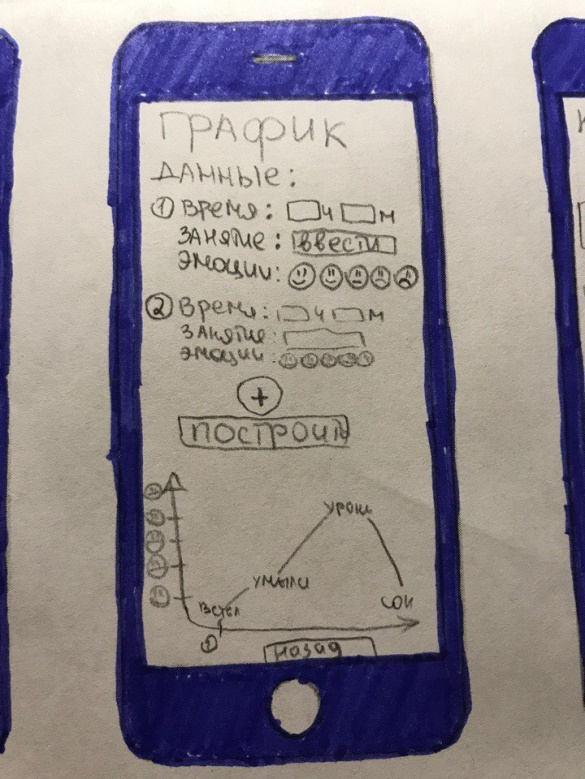 ГРАФИК
ДАННЫЕ:
① ВРЕМЯ: Ч М
ЗАНЯТИЕ: ВВЕСТИ
ЭМОЦИИ:
② ВРЕМЯ: Ч М
ЗАНЯТИЕ:
ЭМОЦИИ:
+
ПОСТРОИТЬ
УРОКИ
ВСТАЛ
СОН
①
НАЗАД